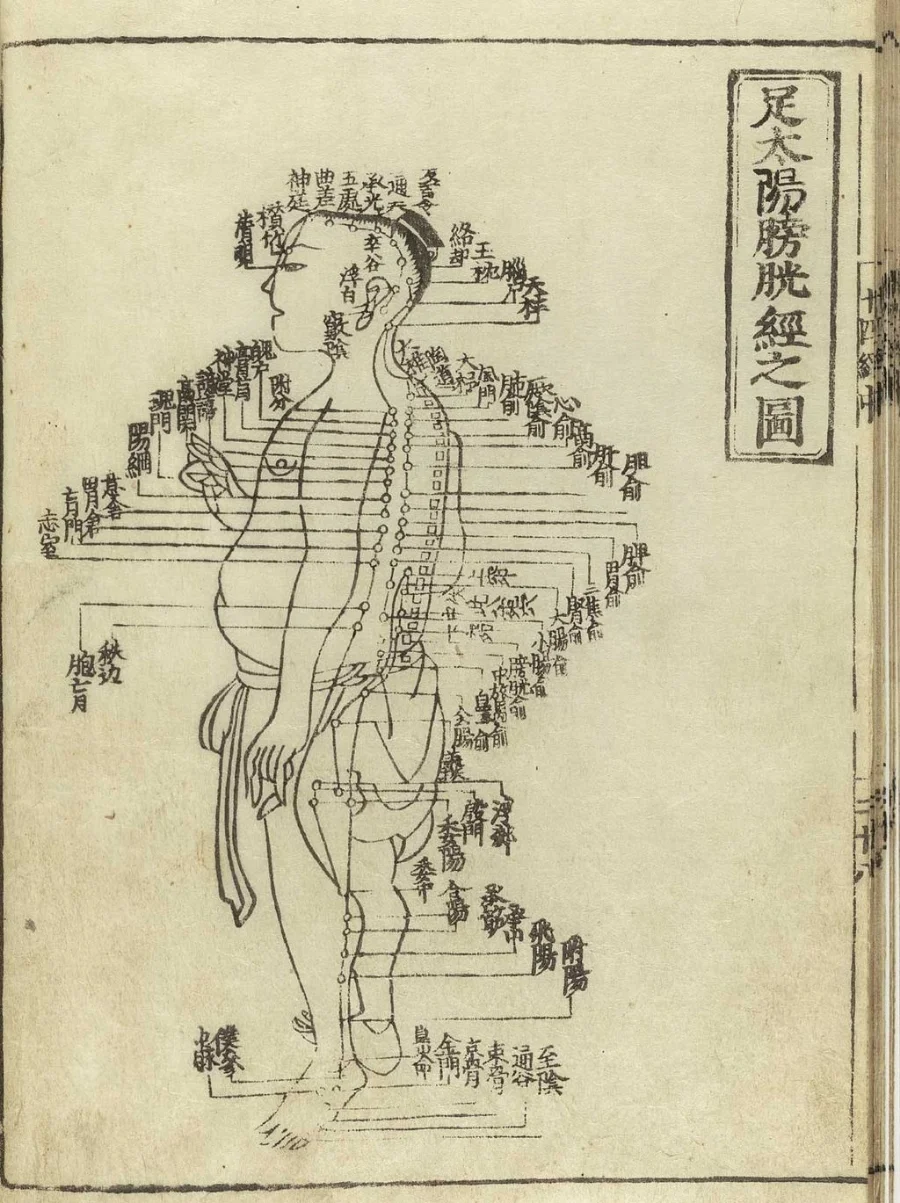 足太陽膀胱經之圖
通天
承光
五處
曲差
神庭
攅竹
睛明
絡却
玉枕
天柱
率谷
浮白
竅陰
大椎
陶道
大杼
風門
肺俞
厥陰俞
心俞
膈俞
肝俞
胆俞
脾俞
胃俞
三焦俞
腎俞
大腸俞
小腸俞
膀胱俞
中膂俞
附分
魄戶
膏肓
神堂
譩譆
膈関
魂門
陽綱
意舍
胃倉
肓門
志室
胞肓
秩边
殷門
浮郄
委陽
委中
合陽
承筋
承山
飛陽
附陽
僕參
申脉
金門
京骨
束骨
通谷
至陰